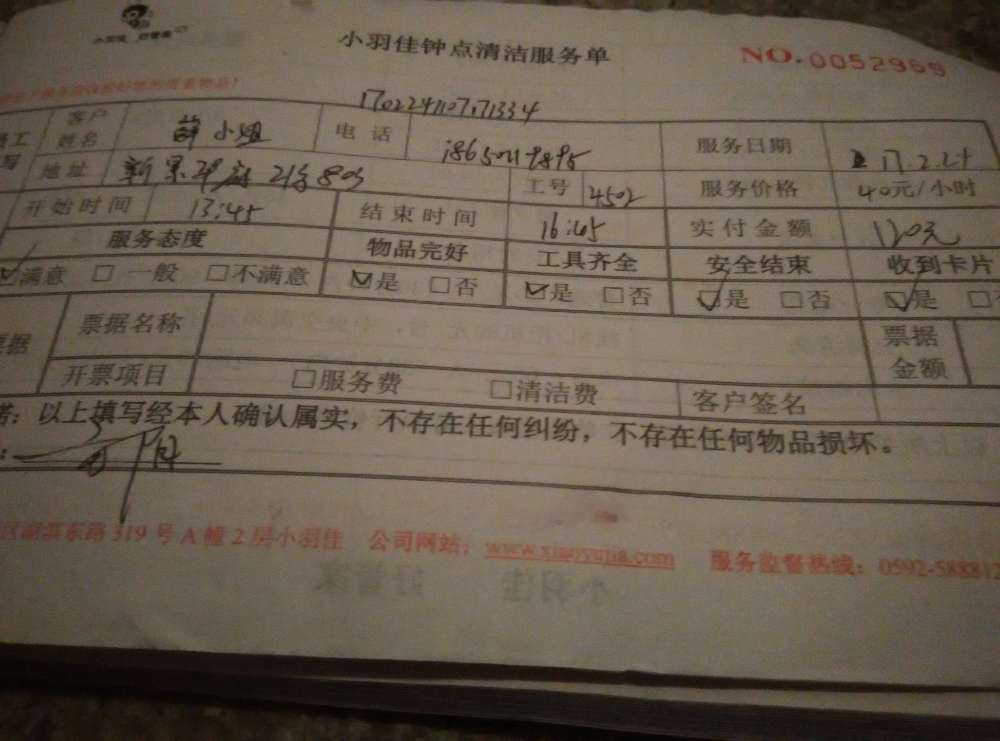 小羽佳 好管家
小羽佳钟点清洁服务单
NO.0052969
贵重物品！
客户姓名 薛小姐 电话 服务日期 17.2.24
地址 工号 4502 服务价格 40元/小时
开始时间 13:45 结束时间 16:45 实付金额 120元
服务态度 物品完好 工具齐全 安全结束 收到卡片
满意 □一般 □不满意 ☑是 □否 ☑是 □否 ☑是 □否 ☑是 □
票据名称 票据金额
开票项目 □服务费 □清洁费 客户签名
诺：以上填写经本人确认属实，不存在任何纠纷，不存在任何物品损坏。
区湖滨东路319号A幢2层小羽佳 公司网站：www.xiaoyujia.com 服务监督热线：0592-588812